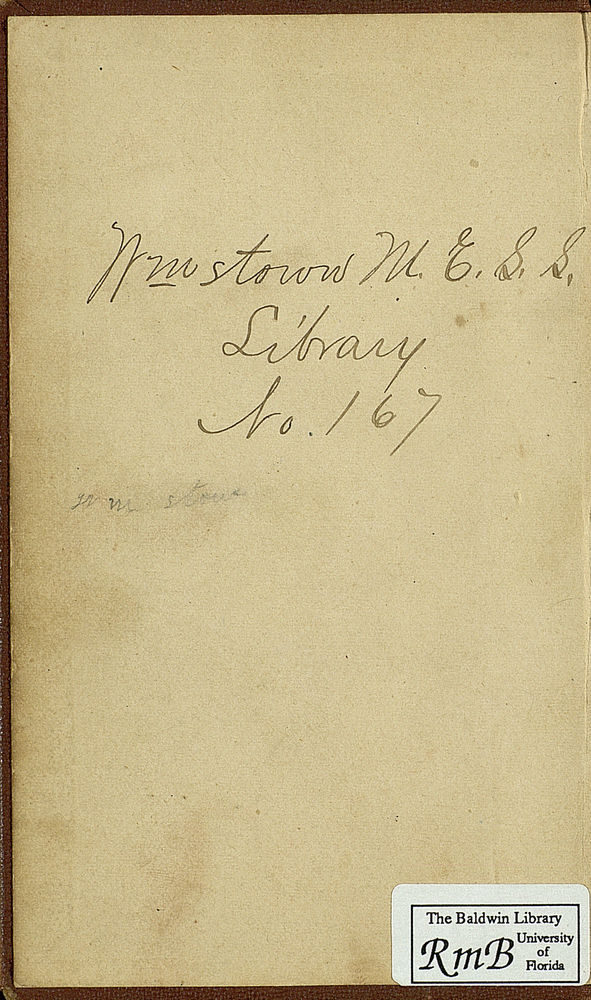 Wmstown M. E. S. S.
Library
No. 167
The Baldwin Library
RmB University
of
Florida